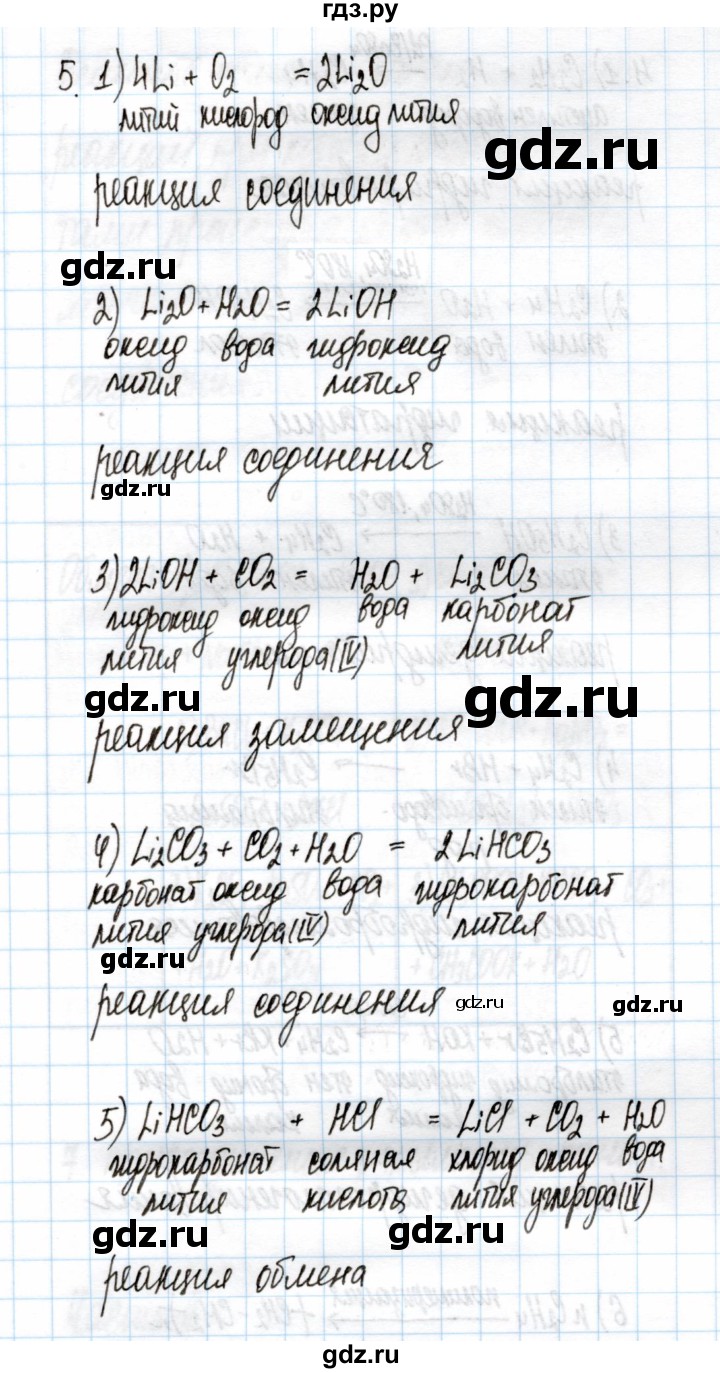 гдз.ру
5. 1) 4Li + O2 = 2Li2O
литий кислород оксид лития
gdz.ru
реакция соединения
gdz.ru
2) Li2O + H2O = 2LiOH
оксид вода гидроксид
лития лития
реакция соединения
gdz.ru
3) 2LiOH + CO2 = H2O + Li2CO3
гидроксид оксид вода карбонат
лития углерода(IV) лития
gdz.ru
gdz.ru
реакция замещения
4) Li2CO3 + CO2 + H2O = 2LiHCO3
карбонат оксид вода гидрокарбонат
лития углерода(IV) лития
gdz.ru
реакция соединения
gdz.ru
gdz.ru
5) LiHCO3 + HCl = LiCl + CO2 + H2O
гидрокарбонат соляная хлорид оксид вода
лития кислота лития углерода(IV)
gdz.ru
gdz.ru
реакция обмена
gdz.ru